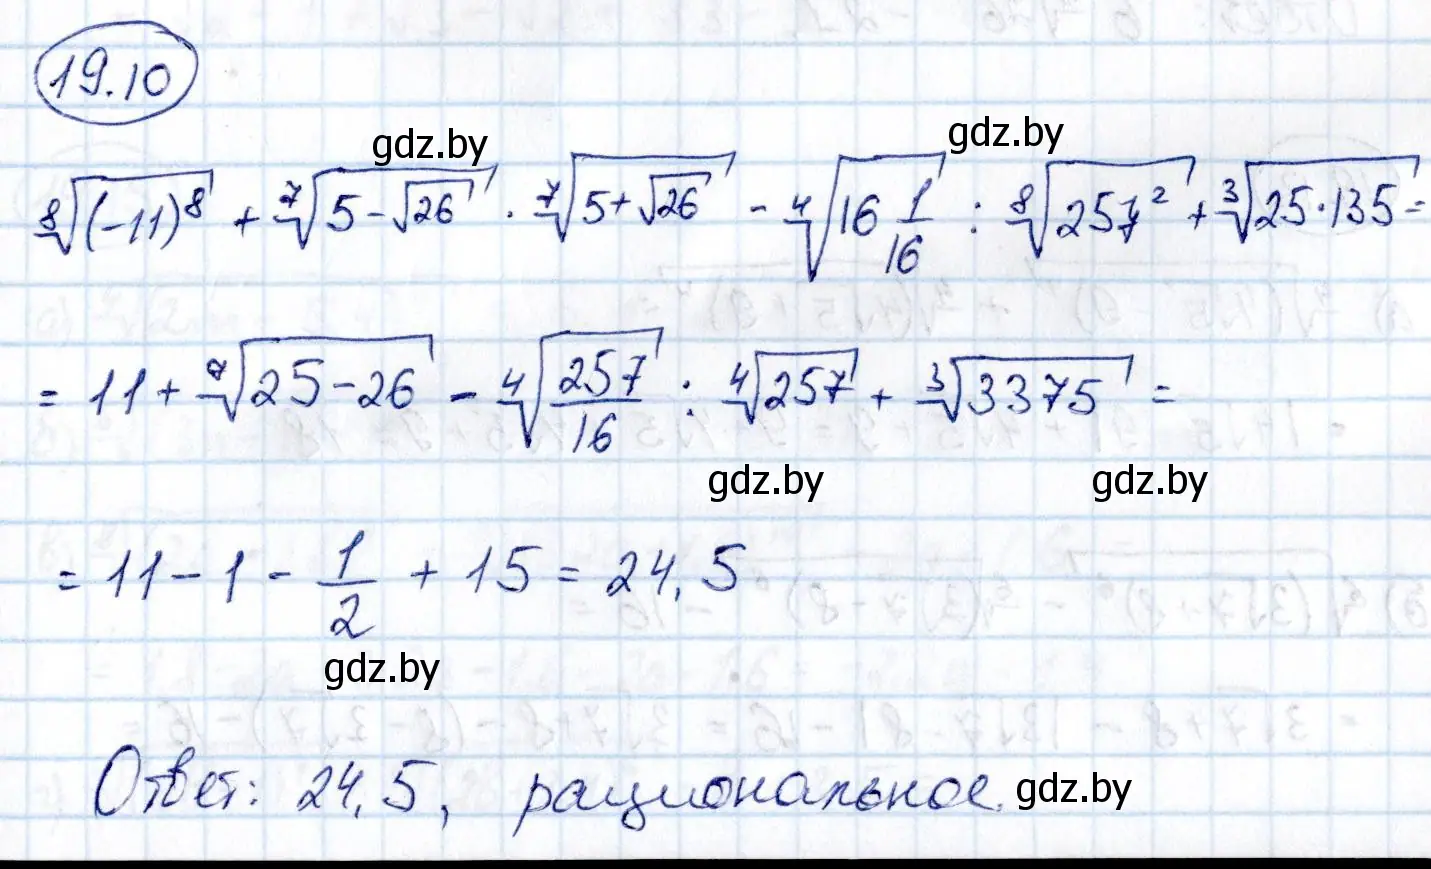 19.10
gdz.by gdz.by
⁸√((-11)⁸) + ⁷√(5-√26) · ⁷√(5+√26) - ⁴√(16 1/16) : ⁸√(257²) + ³√(25·135) =
= 11 + ⁷√(25-26) - ⁴√(257/16) : ⁴√257 + ³√3375 =
gdz.by gdz.by
= 11 - 1 - 1/2 + 15 = 24,5
gdz.by
Ответ: 24,5, рациональное. gdz.by